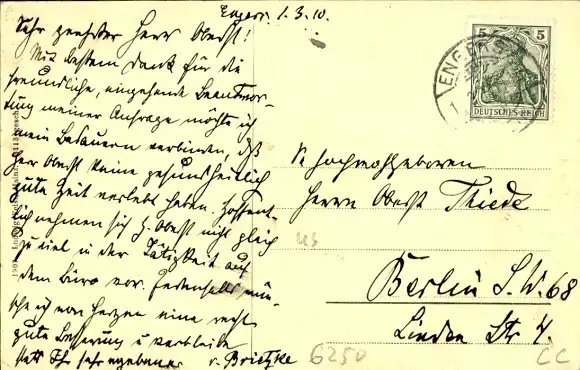 Engers, 1.3.10.
Sehr geehrter Herr Oberst!
Mit bestem Dank für die
freundliche, eingehende Beantwor-
tung meiner Anfrage möchte ich
mein Bedauern verbinden, daß
Herr Oberst keine gesundheitlich
gute Zeit verlebt haben. Hoffent-
lich nehmen sich H. Oberst nicht gleich
zu viel in der Tätigkeit auf
dem Büro vor. Jedenfalls wün-
sche ich von Herzen eine recht
gute Besserung u verbleibe
stets Ihr sehr ergebener
v. Brietzke
5 5
DEUTSCHES REICH
ENGERS
Sr Hochwohlgeboren
Herrn Oberst Thiede
Berlin S.W. 68
Linden Str 4.
6250
CC